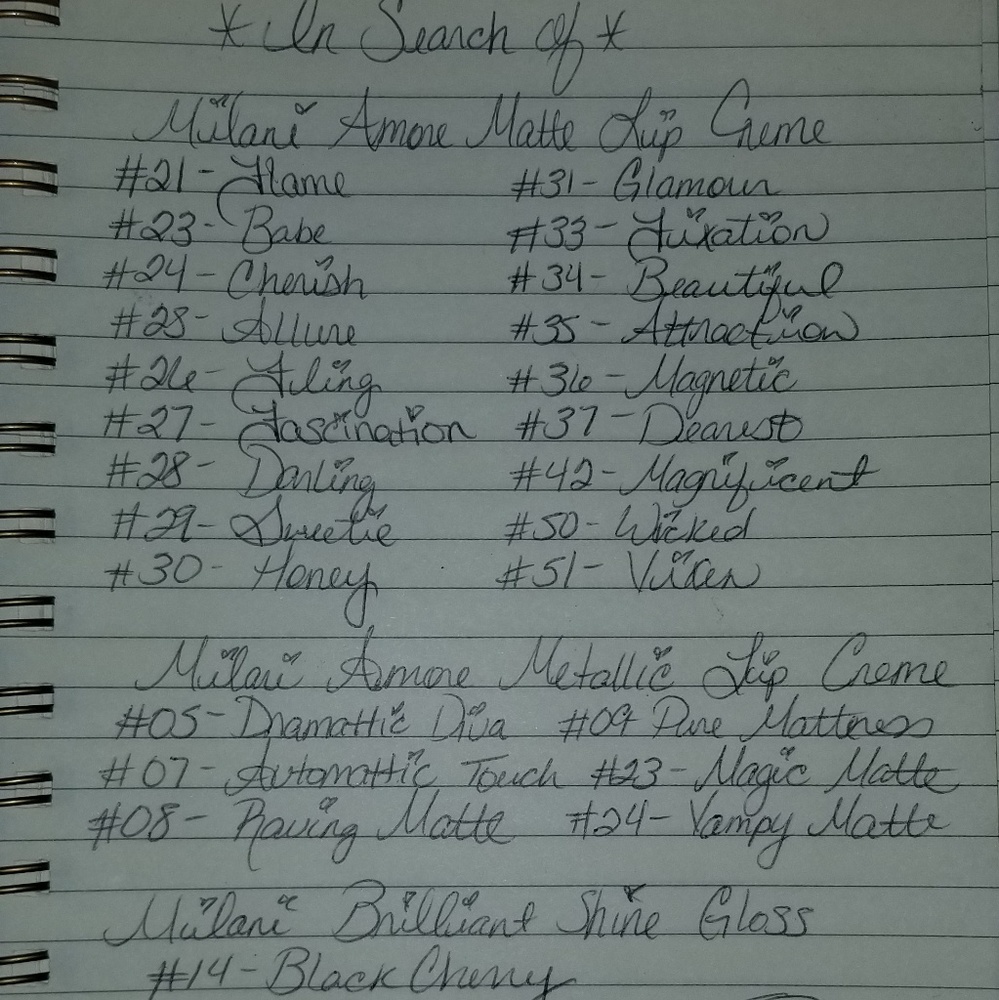 *In Search Of*
Milani Amore Matte Lip Creme
#21- Flame #31- Glamour
#23- Babe #33- Fixation
#24- Cherish #34- Beautiful
#25- Allure #35- Attraction
#26- Fling #36- Magnetic
#27- Fascination #37- Dearest
#28- Darling #42- Magnificent
#29- Sweetie #50- Wicked
#30- Honey #51- Vixen
Milani Amore Metallic Lip Creme
#05- Dramattic Diva #09 Pure Matteness
#07- Automattic Touch #23- Magic Matte
#08- Raving Matte #24- Vampy Matte
Milani Brilliant Shine Gloss
#14- Black Cherry